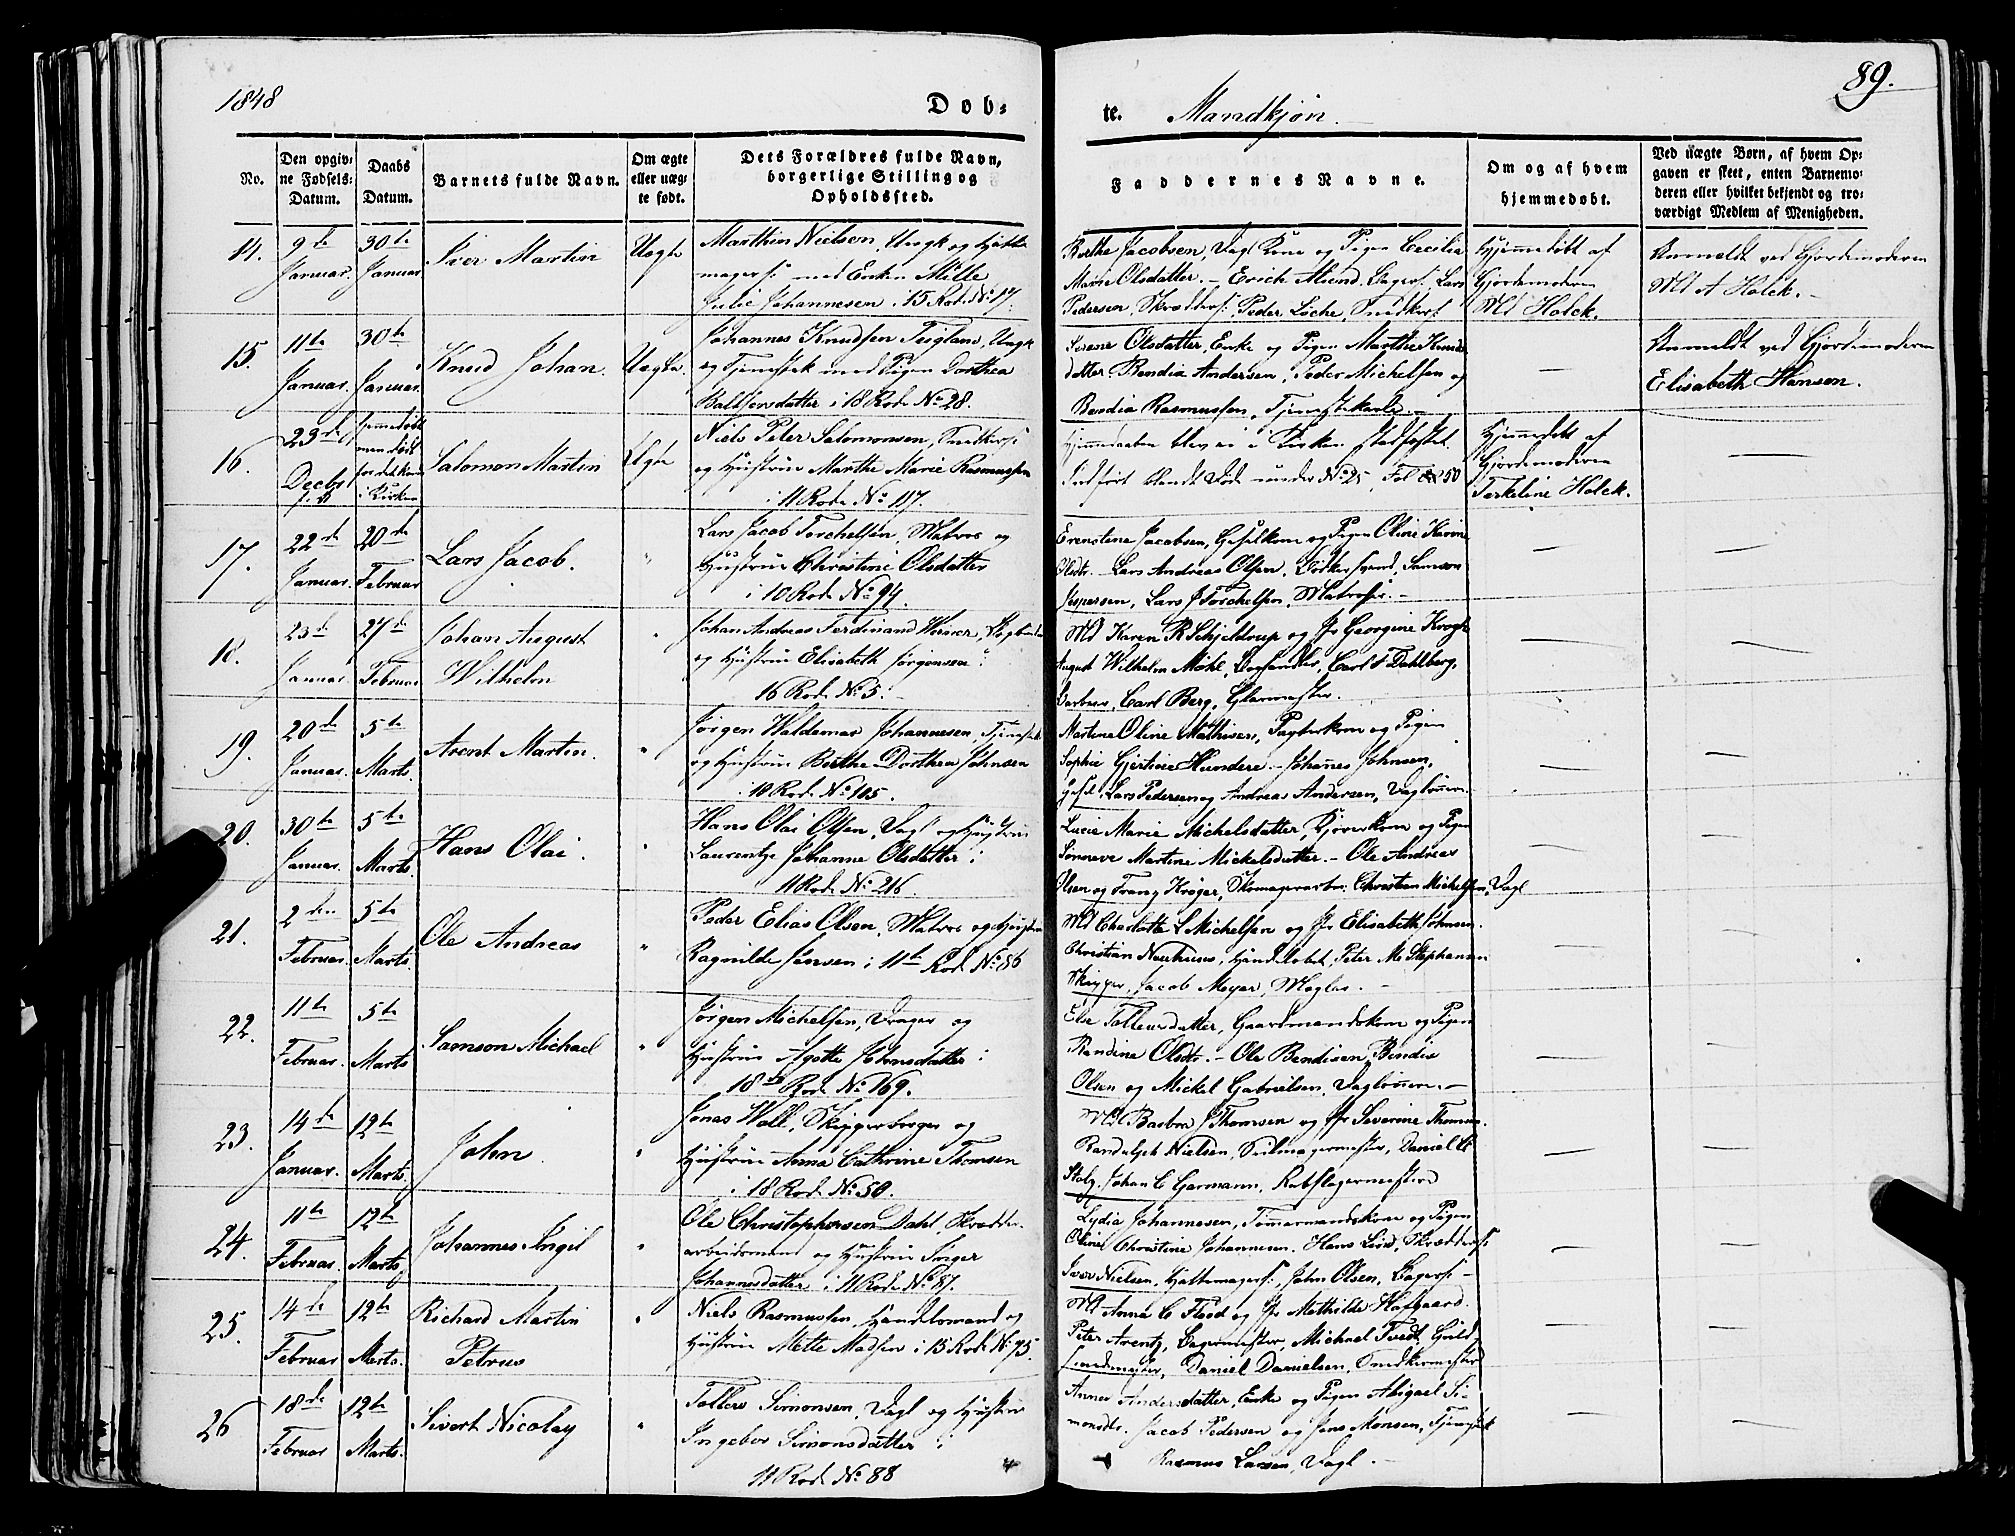 1848
Døb-
te. Mandkjøn.
89.
No.
Den opgiv-
ne Fødsels-
Datum.
Daabs
Datum.
Barnets fulde Navn.
Om ægte
eller uæg-
te født.
Dets Forældres fulde Navn,
borgerlige Stilling og
Opholdssted.
Faddernes Navne.
Om og af hvem
hjemmedøbt.
Ved uægte Børn, af hvem Op-
gaven er skeet, enten Barnemo-
deren eller hvilket bekjendt og tro-
værdigt Medlem af Menigheden.
14. 9de Januar. 30te Januar Iver Martin Uægte
Marthin Nielsen, Ungk og Hatte-
magers: med Enken Mille
Julie Johannesen i 15 Rode No 17.
Berthe Jacobsen, Dagl Kone og Pigen Cecilia
Marie Olsdatter. - Erich Mund, Bagers: Lars
Pedersen, Skrædders: Peder Løche, Snedkers
Hjemmedøbt af
Gjordemoderen
Md Holck.
Anmeldt ved Gjordemoderen
Md A Holck. -
15. 11te Januar. 30te Januar. Knud Johan. Uægte.
Johannes Knudsen Teigland, Ungk
og Tjenestek med Pigen Dorthea
Baltsersdatter i 18 Rode No 28.
Serene Olsdatter, Enke og Pigen Marthe Knuds
datter. Bendix Andersen, Peder Michelsen og
Bendix Rasmussen, Tjenestekarle. -
Anmeldt ved Gjordemoderen
Elisabeth Hansen.
16. 23de Decbr 47 Hjemmedøbt men døbt før det kom i Kirken Salomon Martin Ægte
Niels Peter Salomonsen, Snedkers:
og Hustrue Marthe Marie Rasmussen
i 11 Rode No 117.
Hjemmedaaben blev ei i Kirken stadfæstet.
Indført blandt Døde under No 25, Fol 250
Hjemmedøbt af
Gjordemoderen
Terkeline Holck.
17. 22de Januar. 20de Februar Lars Jacob. "
Lars Jacob Torchelsen, Matros og
Hustrue Christine Olsdatter
i 10 Rode No 94.
Ernstine Jacobsen, Geselkone og Pigen Oline Karine
Olsdtr. - Lars Andreas Olsen, Bødkersvend, Samson
Jespersen, Lars J Torchelsen, Matroser. -
18. 23de Januar 27de Februar Johan August
Wilhelm "
Johan Andreas Ferdinand Werner, Bogbinder
og Hustrue Elisabeth Jørgensen i
16 Rode No 5. -
Md Karen R Schjeldrup og Jfr Georgine Krogh
August Wilhelm Møhl, Boghandler, Carl F Dahlberg,
Barbeer, Carl Berg, Glarmester.
19. 20de Januar. 5te Marts. Arent Martin. "
Jørgen Waldemar Johannesen, Tjenestek
og Hustrue Berthe Dorthea Johnsen
i 18 Rode No 105.
Martine Oline Mathisen, Pagterkone og Pigen
Sophie Gjertine Hundere - Johannes Johnsen,
Gesel, Lars Pedersen og Andreas Andersen, Daglønnere.
20. 30te Januar. 5te Marts. Hans Olai. "
Hans Olai Olsen, Dagl og Hustrue
Laurentze Johanne Olsdatter i
11 Rode No 216.
Lucie Marie Michelsdatter, Kjørerkone og Pigen
Sønneve Martine Mickelsdatter. - Ole Andreas
Olsen og Frantz Krøger, Skomagersvbr. Christian Michelsen, Dagl
21. 2den Februar. 5te Marts. Ole Andreas "
Peder Elias Olsen, Matros og Hustrue
Ragnilde Jensen i 11te Rode No 86
Md Charlotte L Michelsen og Jfr Elisabeth Johnsen.
Christian Neuhuus, Handelsbet, Peter M Stephansen
Skipper, Jacob Meyer, Mægler. -
22. 11te Februar. 5te Marts Samson Michael "
Jørgen Michelsen, Drager og
Hustrue Agethe Johnsdatter i
18de Rode No 169.
Else Tolleivsdatter, Gaardmandskone og Pigen
Randine Olsdtr. - Ole Bendixen, Bendix
Olsen og Mickel Gabrielsen, Daglønnere. -
23. 14de Januar. 12te Marts. John. "
Jonas Woll, Skipperborger og
Hustrue Anna Cathrine Thomsen
i 18 Rode No 50.
Md Barbra J Thomsen og Jfr Severine Thomsen.
Randulph Nielsen, Seilmagermester, Daniel C
Stolz. Johan C Garmann, Rebslagermestere
24. 11te Februar. 12te Marts. Johannes Ingel "
Ole Christophersen Dahl, Skrædder-
arbeidsmand og Hustrue Inger
Johannesdatter i 11 Rode No 87.
Lydia Johannesen, Tømmermandskone og Pigen
Oline Christine Johannesen. Hans Lied, Skrædders:
Iver Nielsen, Hattemagers:, John Olsen, Bagers: -
25. 14de Februar 12te Marts. Richard Martin
Petrus "
Niels Rasmussen, Handelsmand og
Hustrue Mette Madsen i 15 Rode No 95.
Md Anna C Flood og Jfr Mathilde Hofgaard.
Peter Arentz, Bagermester, Michael Tvedt, Guld-
smedmester, Daniel Danielsen, Snedkermester
26 18de Februar 12te Marts. Sivert Nicolay "
Tollers Simonsen, Dagl og Hustrue
Ingebor Simonsdatter i
11 Rode No 88
Anne Andersdatter, Enke og Pigen Abigael Si-
monsdtr. Jacob Pedersen og Jens Monsen, Tjenestek
Rasmus Larsen, Dagl. -